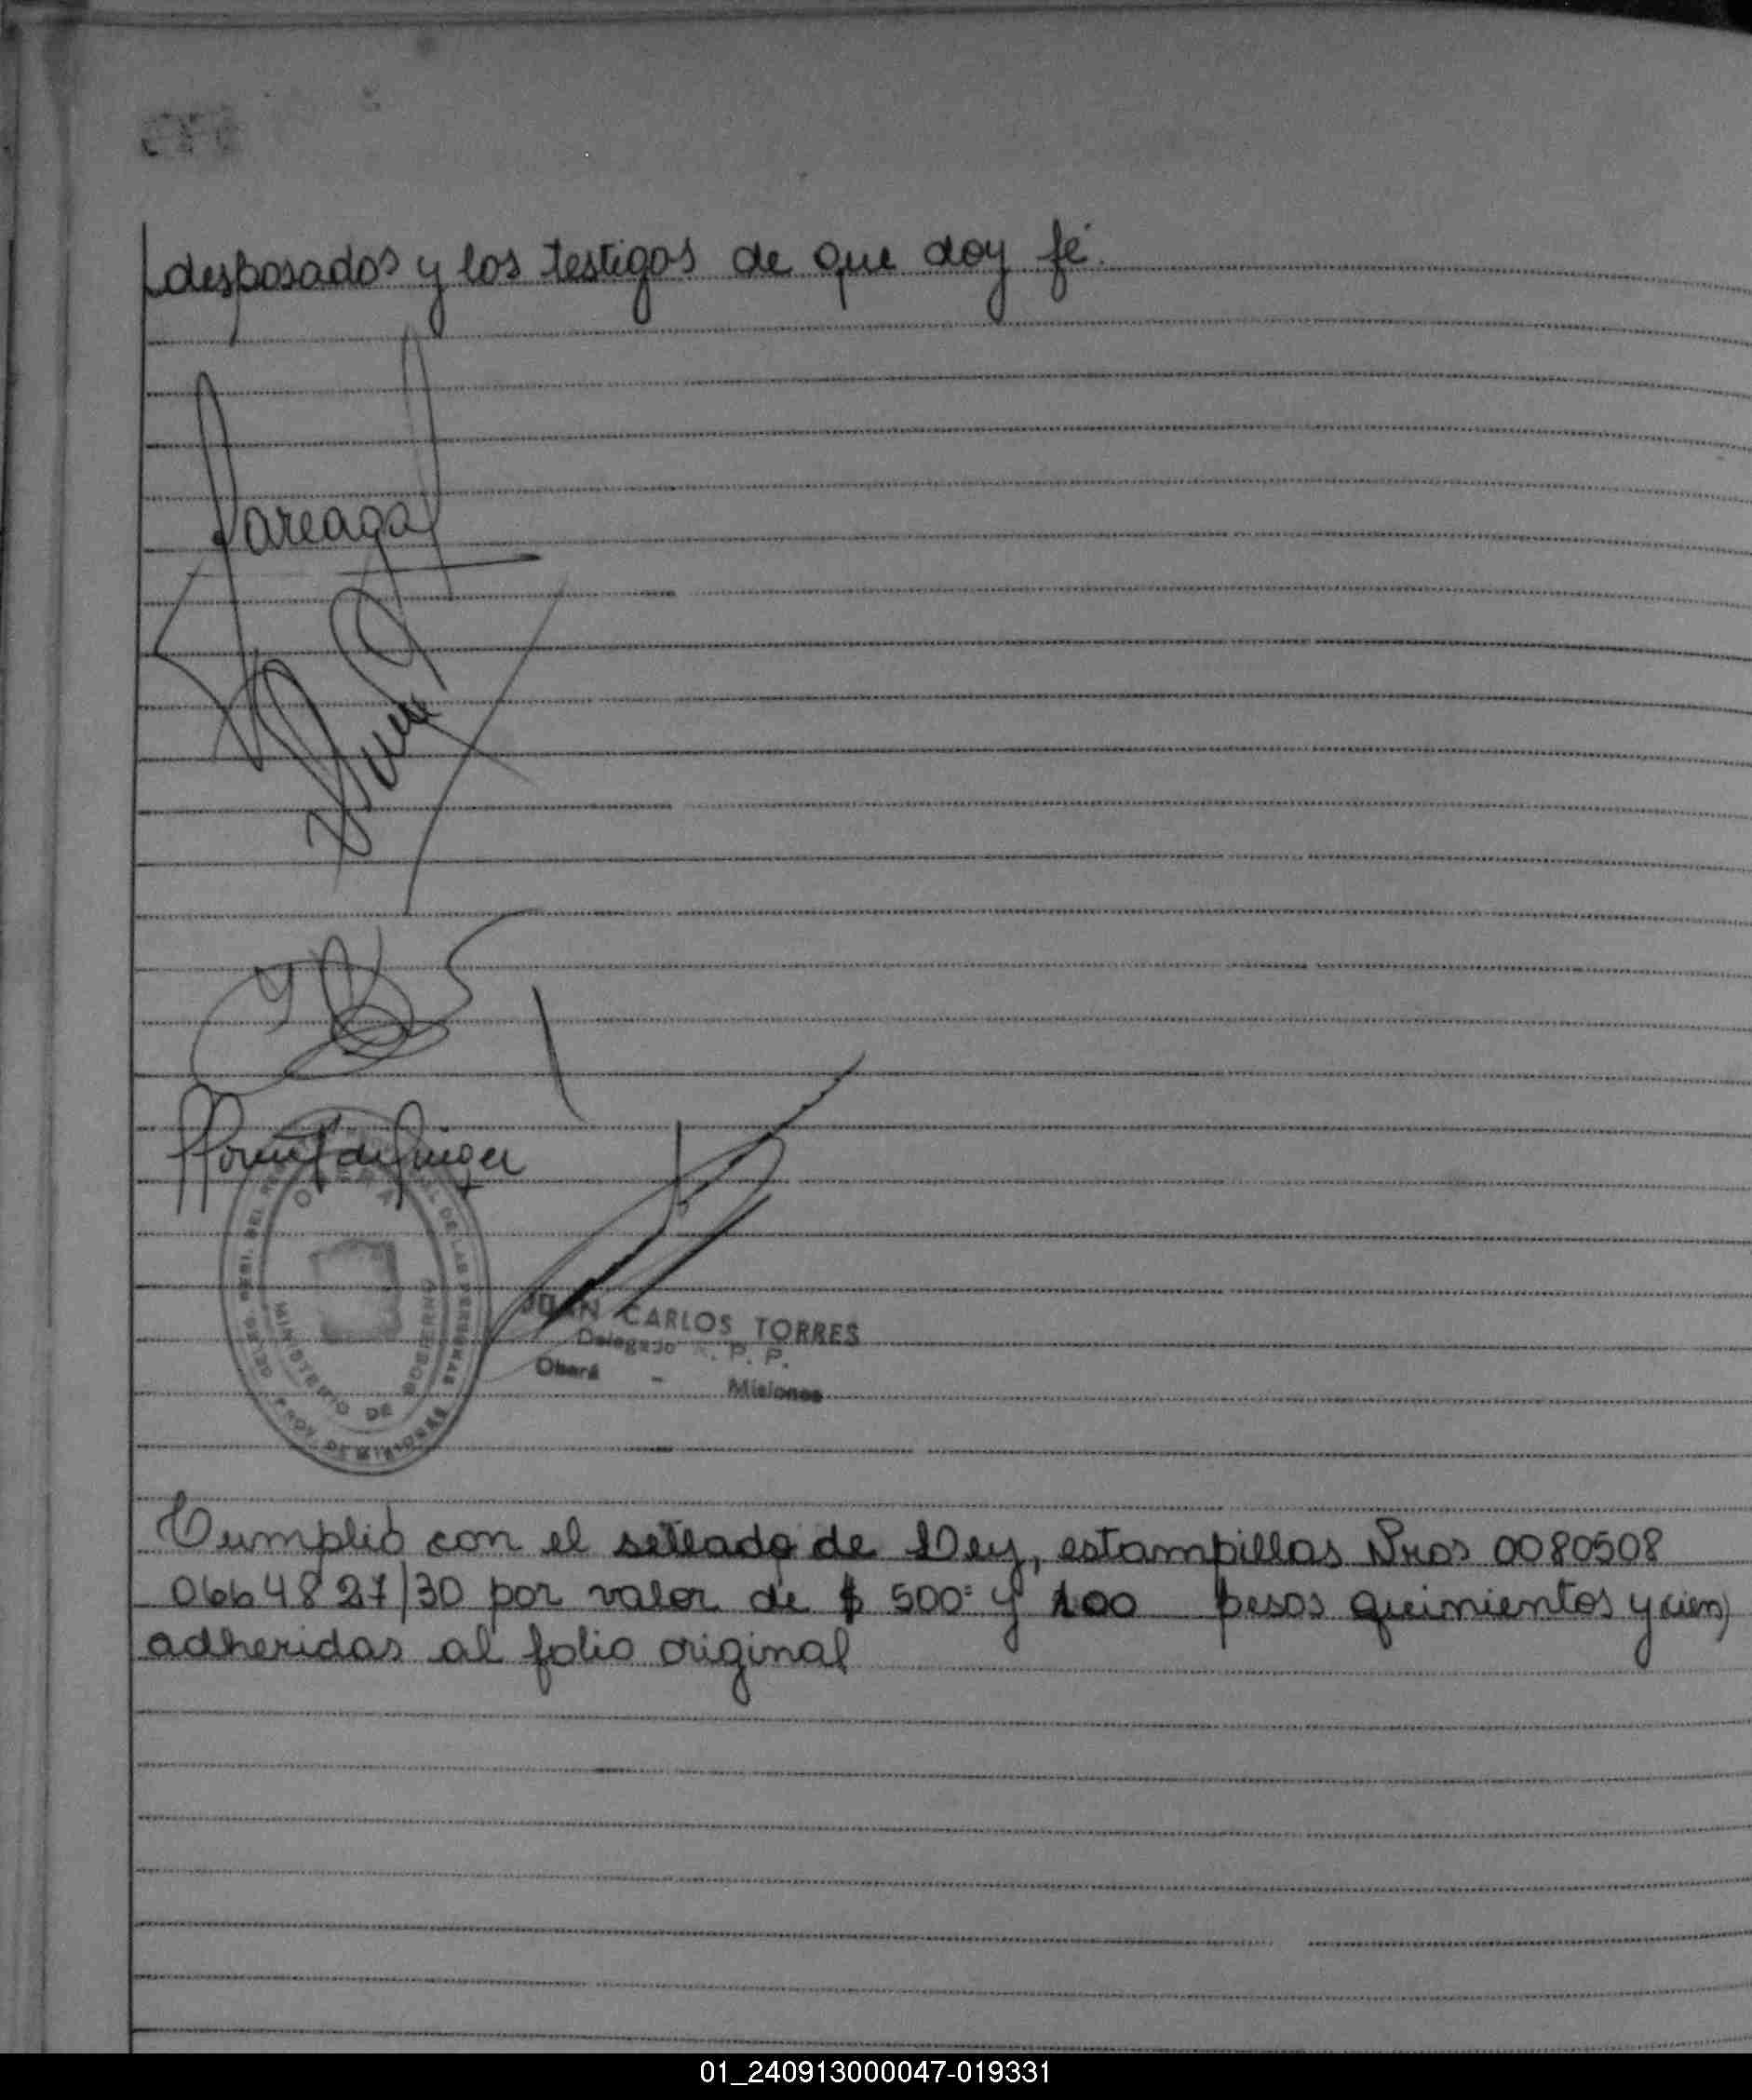 desposados y los testigos de que doy fé.
JUAN CARLOS TORRES
Delegado R. P. P.
Oberá - Misiones
OBERA
DE LAS PERSONAS
MINISTERIO DE GOBERNO
PROV. DE MISIONES
Cumplió con el sellado de Ley, estampillas Nros 0080508
0664827/30 por valor de $ 500 y 100 pesos quinientos y cien)
adheridas al folio original
01_240913000047-019331